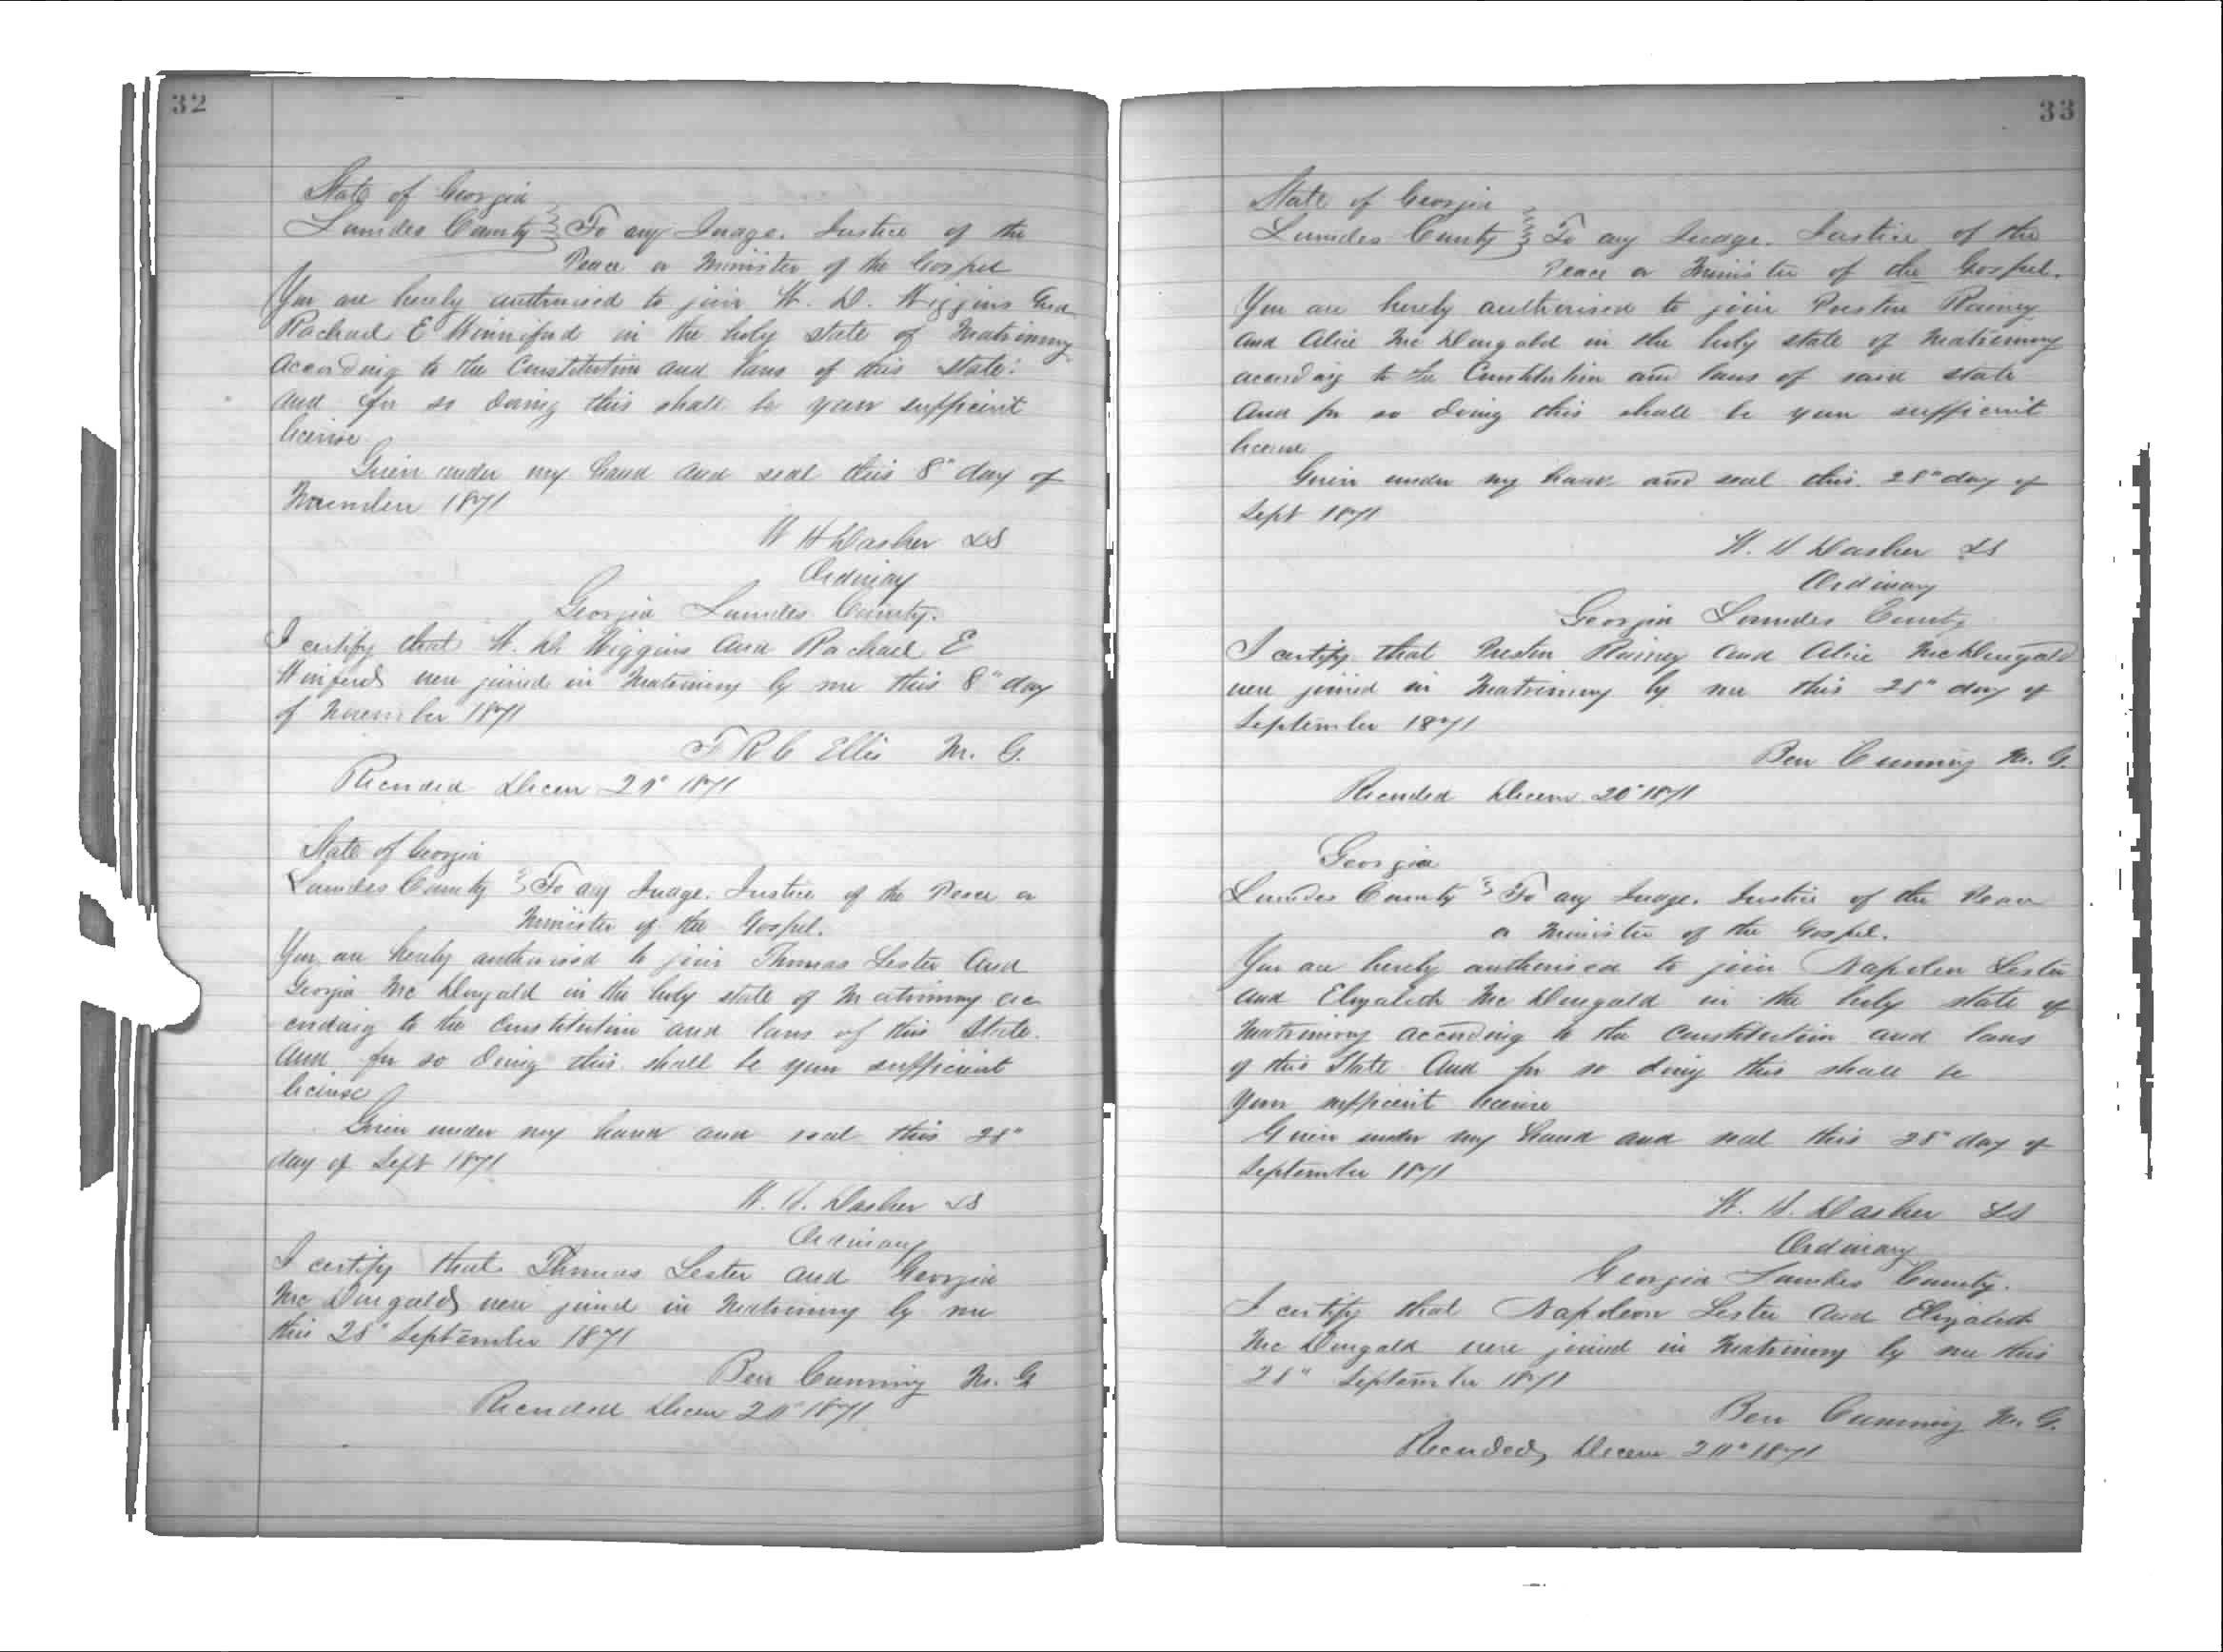 32
State of Georgia
Lowndes County } To any Judge. Justice of the
Peace or Minister of the Gospel
You are hereby authorised to join W. D. Wiggins and
Rachael E Winniford in the holy state of Matrimony
according to the Constitution and laws of this State:
and for so doing this shall be your sufficient
license
Given under my hand and seal this 8" day of
November 1871
W H Dasher LS
Ordinary
Georgia Lowndes County.
I certify that W. D. Wiggins and Rachael E
Winiford were joined in Matrimony by me this 8" day
of November 1871
T R C Ellis M. G.
Recorded Decem 20" 1871
State of Georgia
Lowndes County } To any Judge. Justice of the Peace or
Minister of the Gospel.
You are hereby authorised to join Thomas Lester and
Georgia Mc Dougald in the holy state of Matrimony acc
ording to the Constitution and laws of this State.
And for so doing this shall be your sufficient
license
Given under my hand and seal this 28"
day of Sept 1871
W. H. Dasher LS
Ordinary
I certify that Thomas Lester and Georgia
Mc Dougald were joined in Matrimony by me
this 28" September 1871
Ben Cumming M. G
Recorded Decem 20" 1871
33
State of Georgia
Lowndes County } To any Judge. Justice of the
Peace or Minister of the Gospel.
You are hereby authorised to join Preston Rainey
and Alice Mc Dougald in the holy state of Matrimony
according to the Constitution and laws of said state
And for so doing this shall be your sufficient
license
Given under my hand and seal this 28" day of
Sept 1871
W. H Dasher LS
Ordinary
Georgia Lowndes County
I certify that Preston Rainey and Alice McDougald
were joined in Matrimony by me this 28" day of
September 1871
Ben Cumming M. G.
Recorded Decem 20" 1871
Georgia
Lowndes County } To any Judge. Justice of the Peace
or Minister of the Gospel.
You are hereby authorised to join Napoleon Lester
and Elizabeth Mc Dougald in the holy state of
Matrimony according to the Constitution and laws
of this State And for so doing this shall be
your sufficient license
Given under my hand and seal this 28" day of
September 1871
W. H. Dasher LS
Ordinary
Georgia Lowndes County.
I certify that Napoleon Lester and Elizabeth
Mc Dougald were joined in Matrimony by me this
28" September 1871
Ben Cumming M. G.
Recorded Decem 20" 1871